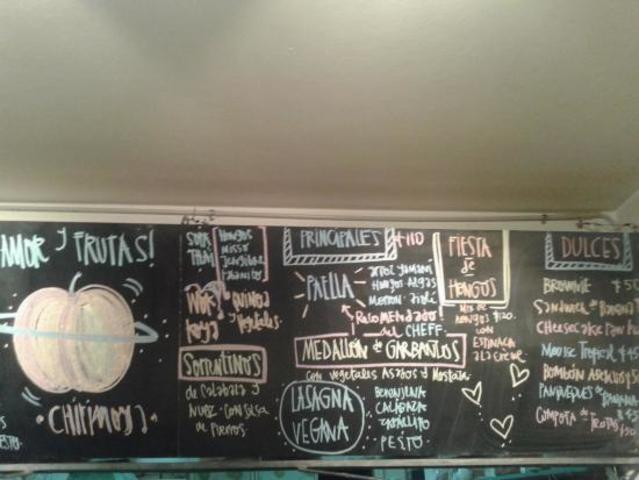 AMOR y FRUTAS!
CHIRIMOYA
SOPA
THAI
HONGOS
MISSO
JENGIBRE
WOK
QUINOA
y Vegetales
SORRENTINOS
de Calabaza y
NUEZ CON SALSA
de PUERROS
PRINCIPALES $110
PAELLA
ARROZ YAMANI
HONGOS ALGAS
MORRON
RECOMENDADO!
del CHEFF
MEDALLON de GARBANZOS
CON VEGETALES ASADOS
LASAGNA
VEGANA
BERENJENA
CALABAZA
ZAPALLITO
PESTO
FIESTA
de
HONGOS
MIX DE
HONGOS $120
CON
ESPINACA
A LA CREME
DULCES
BROWNIE
SANDWICH de BANANA
CHEESECAKE
MOUSE TROPICAL
BOMBON
PANQUEQUES de BANANA
COMPOTA de FRUTAS